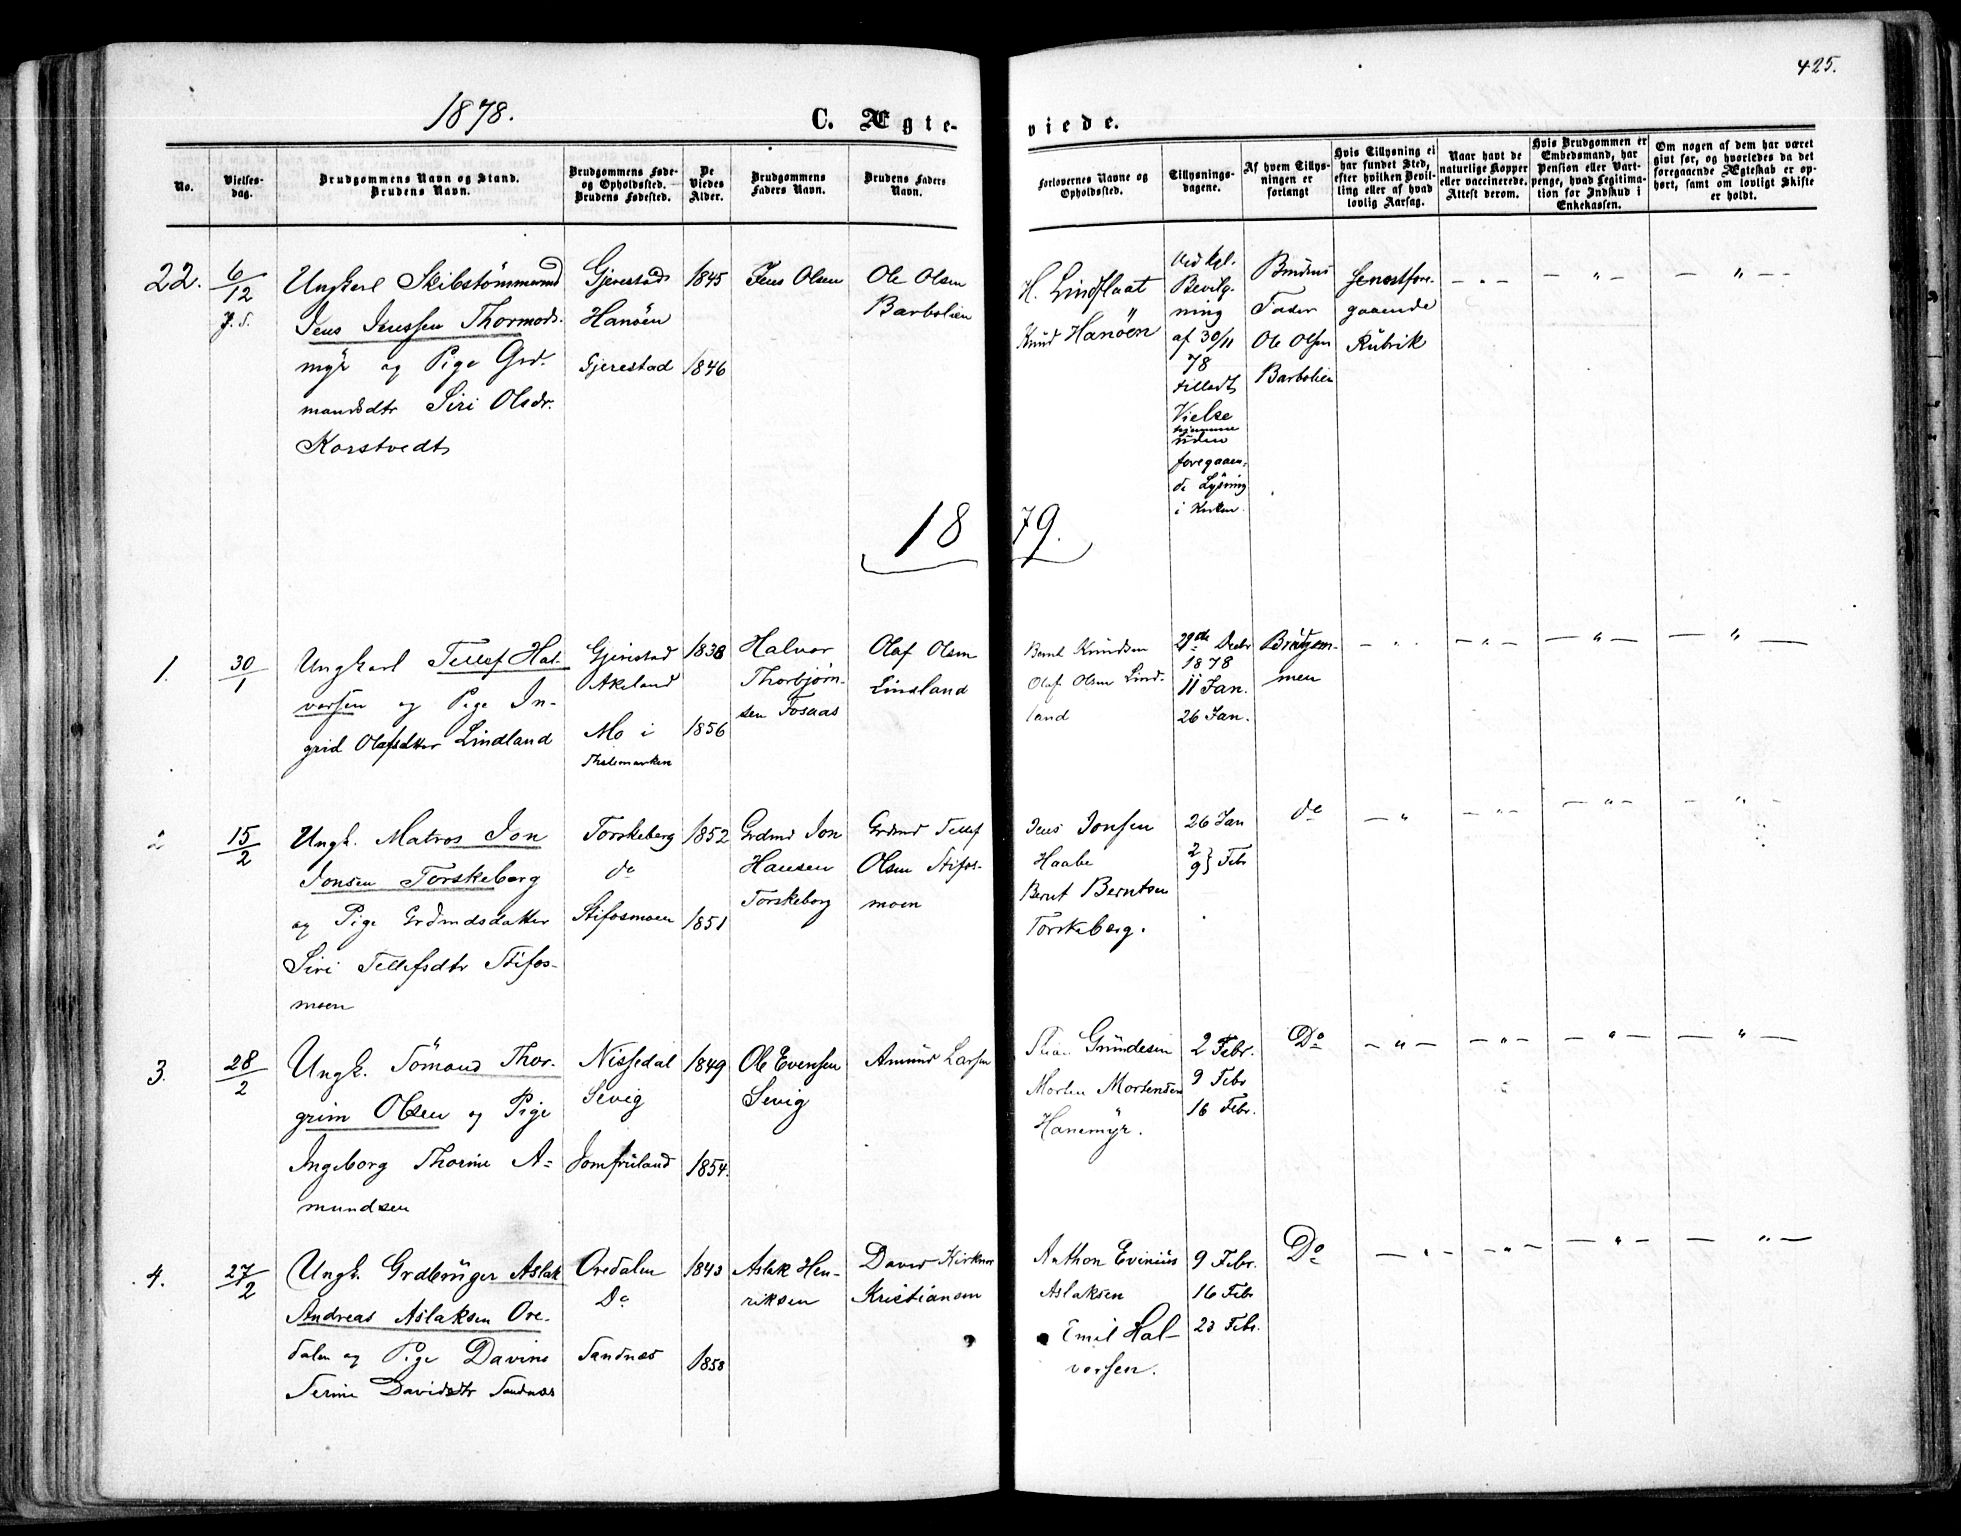 1878.
C. Ægte-
viede.
425.
No.
Vielses-
dag.
Brudgommens Navn og Stand.
Brudens Navn.
Brudgommens Føde-
og Opholdssted.
Brudens Fødested.
De
Viedes
Alder.
Brudgommens
Faders Navn.
Brudens Faders
Navn.
Forlovernes Navne og
Opholdssted.
Tillysnings-
dagene.
Af hvem Tillys-
ningen er
forlangt
Hvis Tillysning ei
har fundet Sted,
efter hvilken Bevil-
ling eller af hvad
lovlig Aarsag.
Naar havt de
naturlige Kopper
eller vaccinerede.
Attest derom.
Hvis Brudgommen er
Embedsmand, har
Pension eller Vart-
penge, hvad Legitima-
tion for Indskud i
Enkekassen.
Om nogen af dem har været
givt før, og hvorledes da det
foregaaende Ægteskab er op-
hørt, samt om lovligt Skifte
er holdt.
22.
6/12
Ungkarl Skibstømmermd
Jens Jenssen Thormods-
myr og Pige Grd-
mandsdtr Siri Olsdr.
Korstvedt
Gjerestad
Hanöen
Gjerestad
1845
1846
Jens Olsen
Ole Olsen
Barbolien
H. Lindflaat
Knud Hanöen
Ved kgl.
Bevilg-
ning
af 30/11
78
tilladt
Vielse
hjemme
uden
foregaaen-
de Lysning
i Kirken.
Brudens
Fader
Ole Olsen
Barbolien
Jenostfore-
gaaende
Rubrik
- " -
- " -
- " -
1879.
1.
30/1
Ungkarl Tellef Hal-
vorsen og Pige In-
grid Olafsdtter Lindland
Gjerestad
Akeland
Mo i
Thelemarken
1838
1856
Halvor
Thorbjørn-
sen Fosaas
Olaf Olsen
Lindland
Bernt Knudsen
Olaf Olsen Lind-
land
29de Decbr
1878
11 Jan.
26 Jan.
Brudgom-
men
- " -
- " -
- " -
- " -
2
15/2
Ungk. Matros Jon
Jonsen Torskeberg
og Pige Grdmdsdatter
Siri Tellefsdtr Stifos-
moen
Torskeberg
do
Stifosmoen
1852
1851
Grdmd Jon
Hansen
Torskeberg
Grdmd Tellef
Olsen Stifos-
moen
Jens Jonsen
Haabe
Bernt Berntsen
Torskeberg.
26 Jan
2
9 } Febr
do
- "
- " -
- " -
- " -
3.
28/2
Ungk. Tömand Thor-
grim Olsen og Pige
Ingeborg Thorine A-
mundsen
Nissedal
Sevig
Jomfruland
1849
1854.
Ole Evensen
Sevig
Amund Larsen
Gundesen
Morten Mortensen
Hanemyr.
2 Febr.
9 Febr
16 Febr.
Do
- " -
- " -
- " -
- " -
4.
27/2
Ungk. Grdbruger Aslak
Andreas Aslaksen Ove-
dalen og Pige Davine
Serine Davidsdtr Sandnæs
Ovedalen
Do
Sandnæs
1843
1858
Aslak Hen-
riksen
David Kirkner
Kristiansen
Anthon Evinius
Aslaksen
Emil Hal-
vorsen.
9 Febr.
16 Febr
23 Febr.
Do
- " -
- " -
- " -
- " -